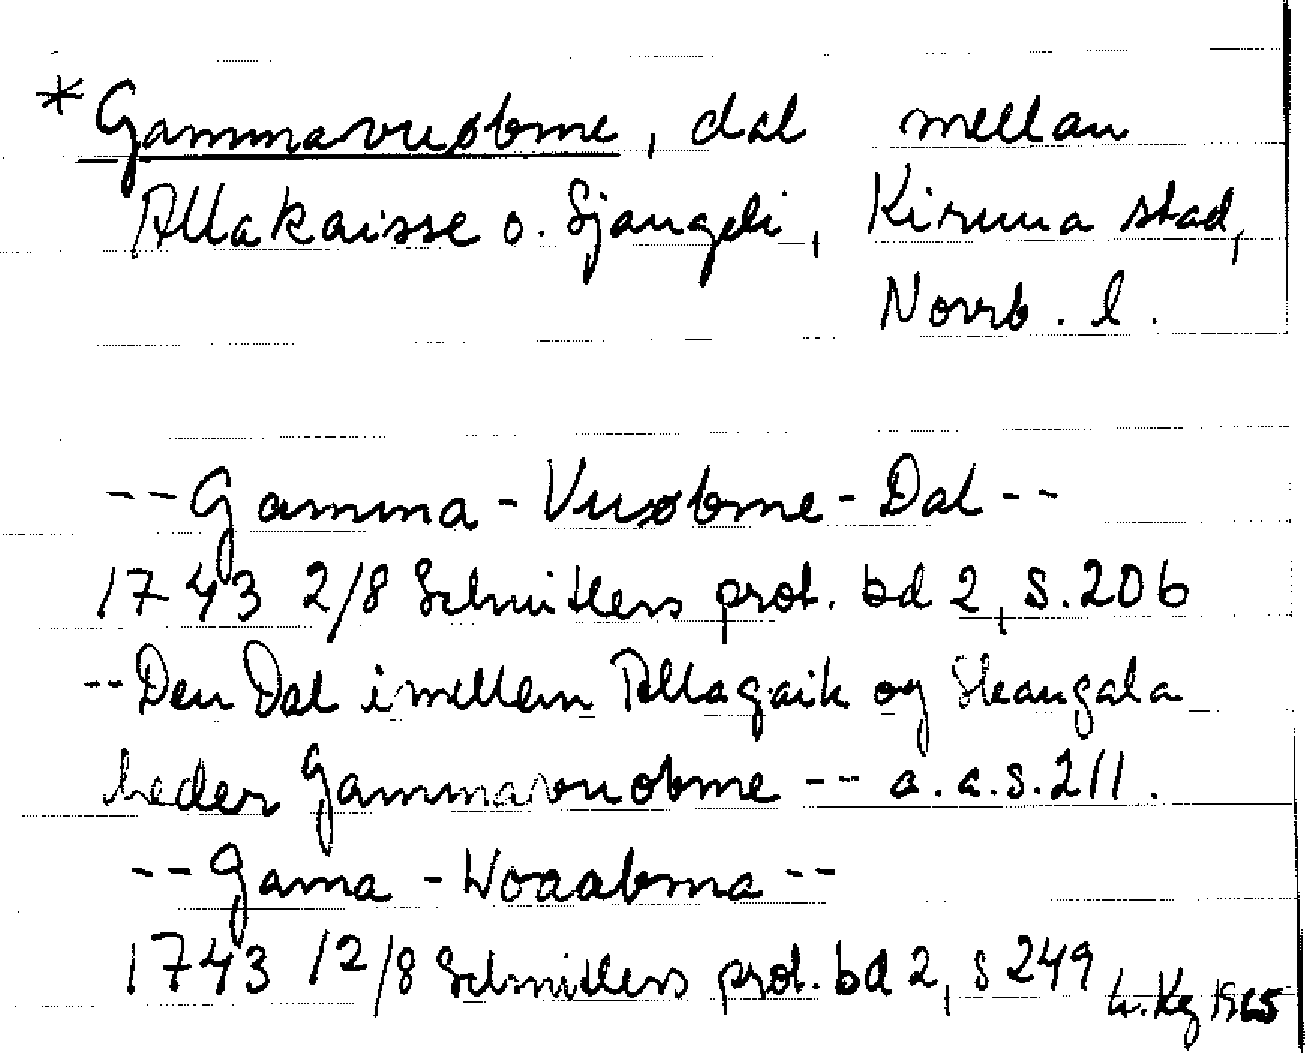 * Gammavuobme, dal mellan
Allakaisse o. Sjangeli, Kiruna stad,
Norrb. l.
-- Gamma - Vuobme - Dal --
1743 2/8 Schnitlers prot. bd 2, s. 206
-- Den Dal imellem Allagaik og Skangala
heder Gammavuobme -- a.a.s. 211.
-- Gama - Woaabma --
1743 12/8 Schnitlers prot. bd 2, s 249 1965